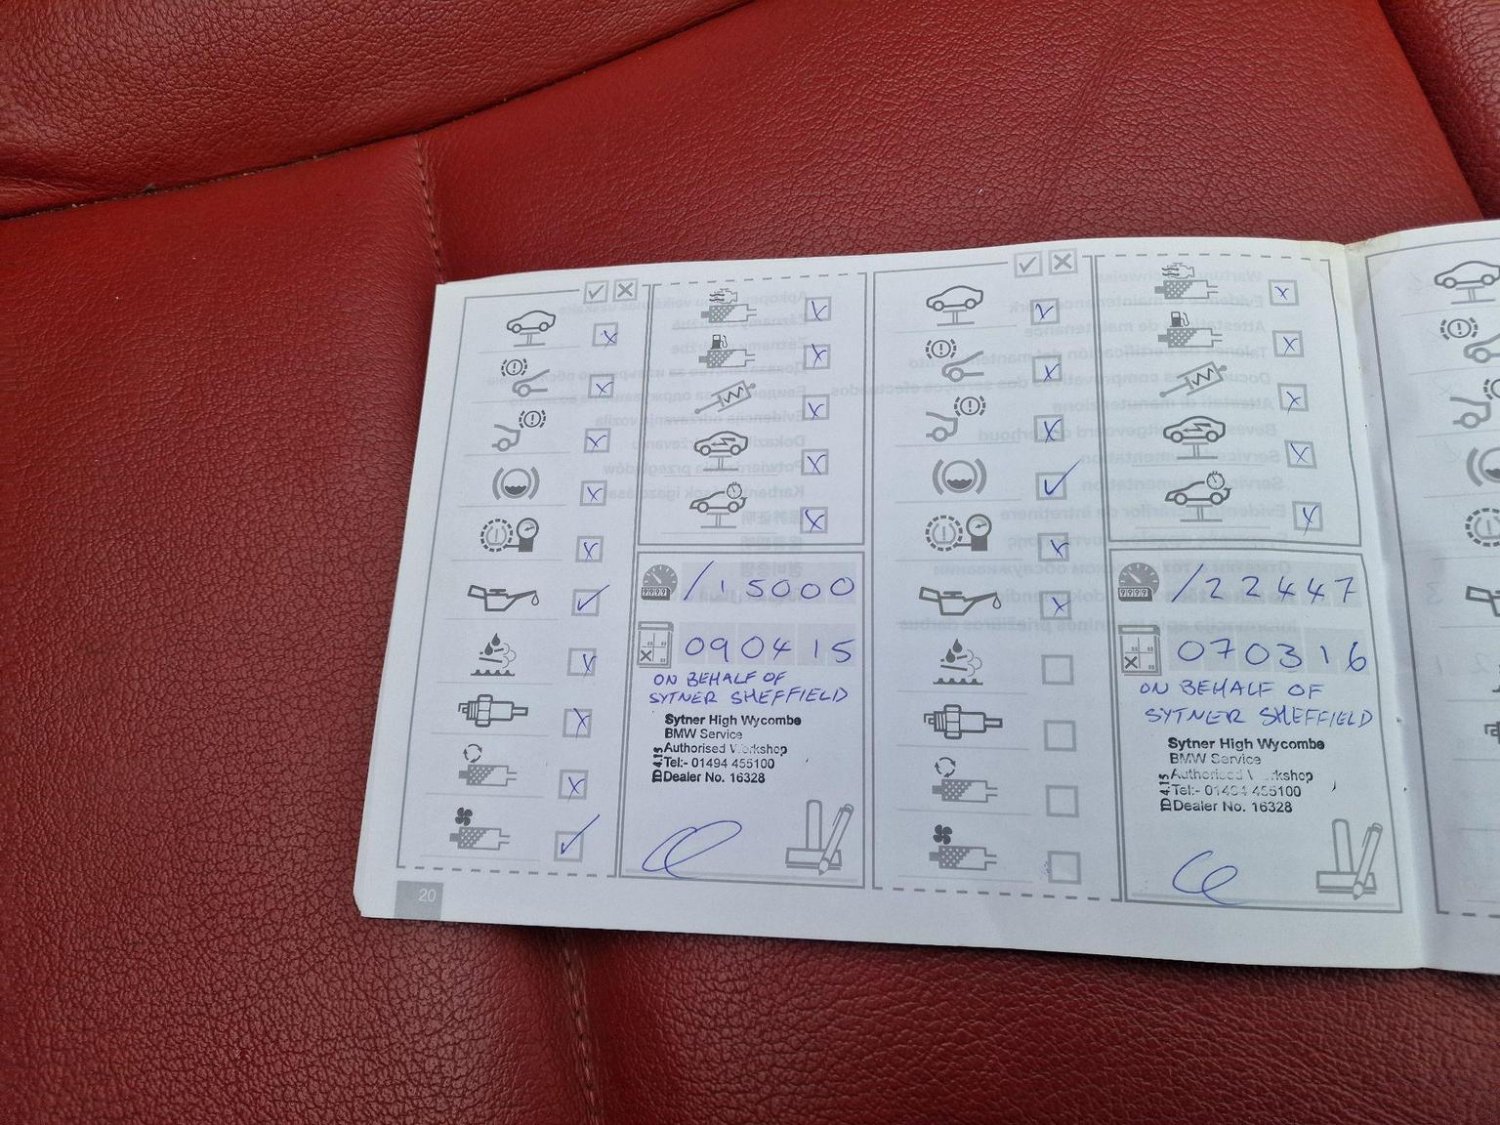 /15000
090415
ON BEHALF OF
SYTNER SHEFFIELD
Sytner High Wycombe
BMW Service
Authorised
Tel:- 01494 455100
Dealer No. 16328
20
/22447
070316
ON BEHALF OF
SYTNER SHEFFIELD
Sytner High Wycombe
BMW Service
Tel:-
Dealer No. 16328